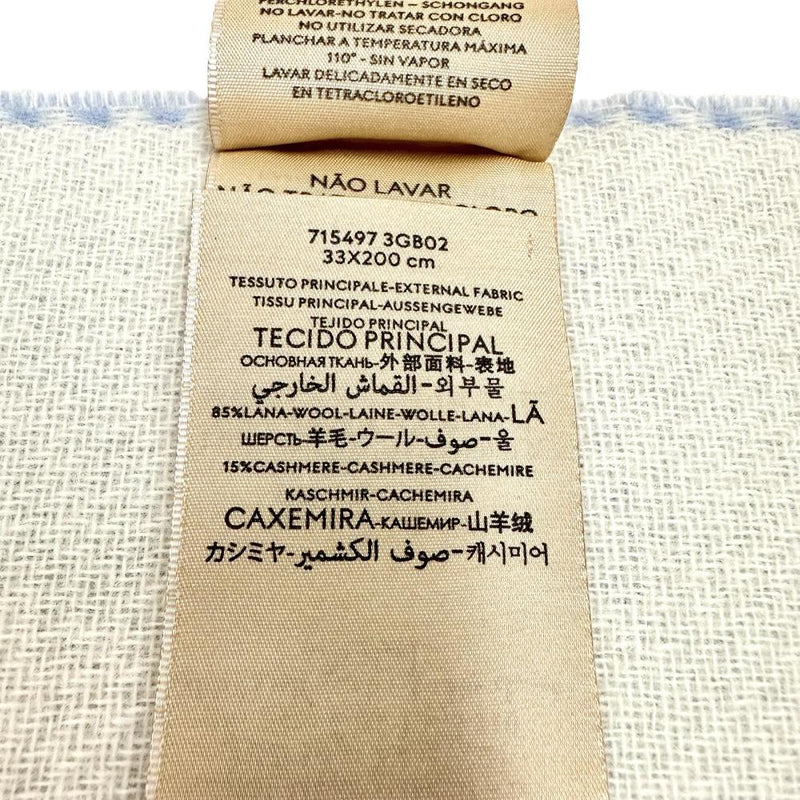 PERCHLORETHYLEN – SCHONGANG
NO LAVAR-NO TRATAR CON CLORO
NO UTILIZAR SECADORA
PLANCHAR A TEMPERATURA MÁXIMA
110° - SIN VAPOR
LAVAR DELICADAMENTE EN SECO
EN TETRACLOROETILENO
NÃO LAVAR
715497 3GB02
33X200 cm
TESSUTO PRINCIPALE-EXTERNAL FABRIC
TISSU PRINCIPAL-AUSSENGEWEBE
TEJIDO PRINCIPAL
TECIDO PRINCIPAL
ОСНОВНАЯ ТКАНЬ-外部面料-表地
القماش الخارجي-외부물
85%LANA-WOOL-LAINE-WOLLE-LANA-LÃ
ШЕРСТЬ-羊毛-ウール-صوف-울
15%CASHMERE-CASHMERE-CACHEMIRE
KASCHMIR-CACHEMIRA
CAXEMIRA-КАШЕМИР-山羊绒
カシミヤ-صوف الكشمير-캐시미어